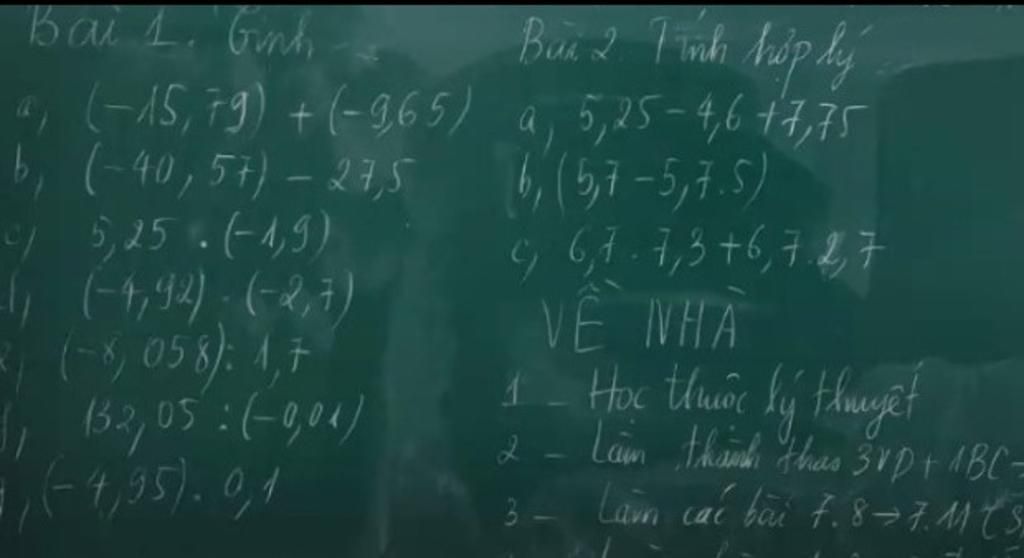 Bài 1. Tính
a, (-15,79) + (-9,65)
b, (-40,57) - 27,5
c, 5,25 . (-1,9)
d, (-4,92) . (-2,7)
(-8,058) : 1,7
132,05 : (-0,01)
(-4,95) . 0,1
Bài 2. Tính hợp lý
a, 5,25 - 4,6 + 7,75
b, (5,7 - 5,7.5)
c, 6,7 . 7,3 + 6,7.2,7
VỀ NHÀ
1 - Học thuộc lý thuyết
2 - Làm thành thạo 3VD + 1BC
3 - Làm các bài 7.8 → 7.11 (S